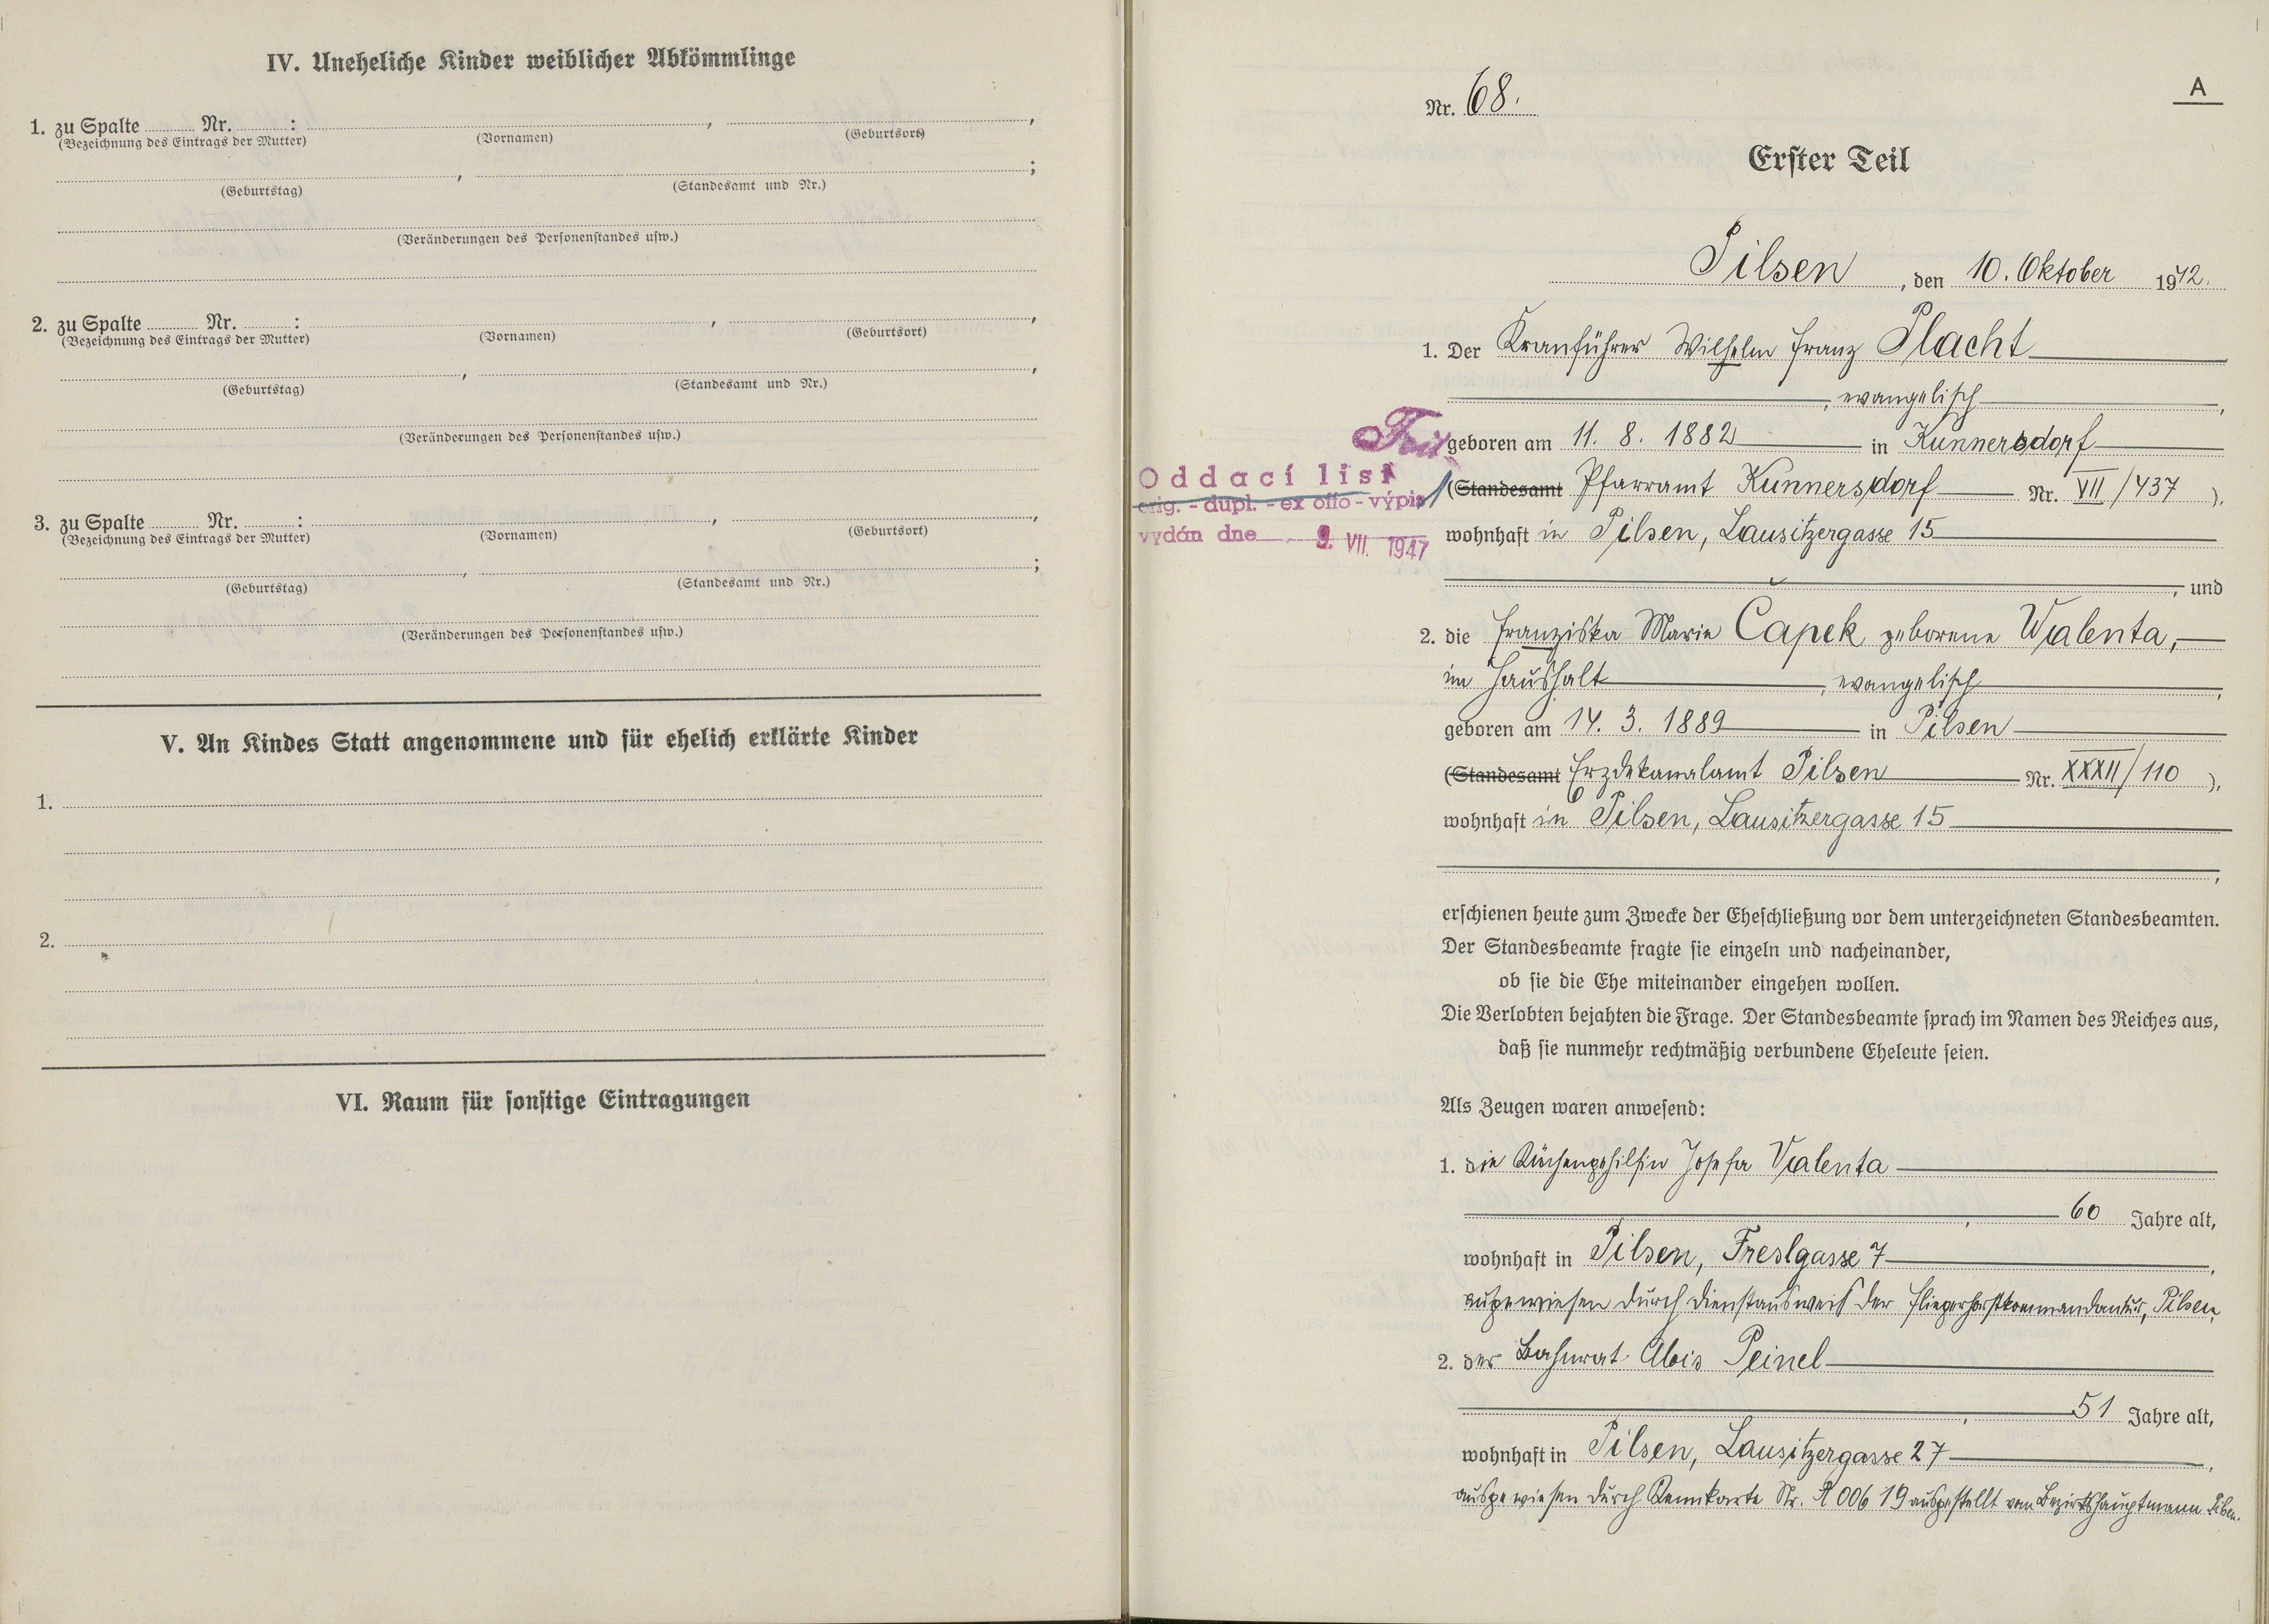 IV. Uneheliche Kinder weiblicher Abkömmlinge
1. zu Spalte Nr. : , ,
(Bezeichnung des Eintrags der Mutter) (Vornamen) (Geburtsort)
, ;
(Geburtstag) (Standesamt und Nr.)
(Veränderungen des Personenstandes usw.)
2. zu Spalte Nr. : , ,
(Bezeichnung des Eintrags der Mutter) (Vornamen) (Geburtsort)
, ,
(Geburtstag) (Standesamt und Nr.)
(Veränderungen des Personenstandes usw.)
3. zu Spalte Nr. : , ,
(Bezeichnung des Eintrags der Mutter) (Vornamen) (Geburtsort)
, ;
(Geburtstag) (Standesamt und Nr.)
(Veränderungen des Personenstandes usw.)
V. An Kindes Statt angenommene und für ehelich erklärte Kinder
1.
2.
VI. Raum für sonstige Eintragungen
A
Nr. 68.
Erster Teil
Pilsen, den 10. Oktober 1942.
1. Der Kranführer Wilhelm Franz Placht
, evangelisch,
geboren am 11. 8. 1882 in Kunnersdorf
(Standesamt Pfarramt Kunnersdorf Nr. VII/437),
wohnhaft in Pilsen, Lausitzergasse 15
, und
Oddací list
orig. - dupl. - ex offo - výpis
vydán dne 9. VII. 1947
2. die Franziska Marie Čapek geborene Walenta,
im Haushalt, evangelisch,
geboren am 14. 3. 1889 in Pilsen
(Standesamt Erzdekanalamt Pilsen Nr. XXXII/110),
wohnhaft in Pilsen, Lausitzergasse 15
,
erschienen heute zum Zwecke der Eheschließung vor dem unterzeichneten Standesbeamten.
Der Standesbeamte fragte sie einzeln und nacheinander,
ob sie die Ehe miteinander eingehen wollen.
Die Verlobten bejahten die Frage. Der Standesbeamte sprach im Namen des Reiches aus,
daß sie nunmehr rechtmäßig verbundene Eheleute seien.
Als Zeugen waren anwesend:
1. die Küchengehilfin Josefa Valenta
, 60 Jahre alt,
wohnhaft in Pilsen, Freslgasse 7,
ausgewiesen durch Dienstausweis der Fliegerhorstkommandantur, Pilsen,
2. der Bahnrat Alois Peinel
, 51 Jahre alt,
wohnhaft in Pilsen, Lausitzergasse 27,
ausgewiesen durch Kennkarte Nr. A 006 19 ausgestellt vom Bezirkshauptmann Pilsen.